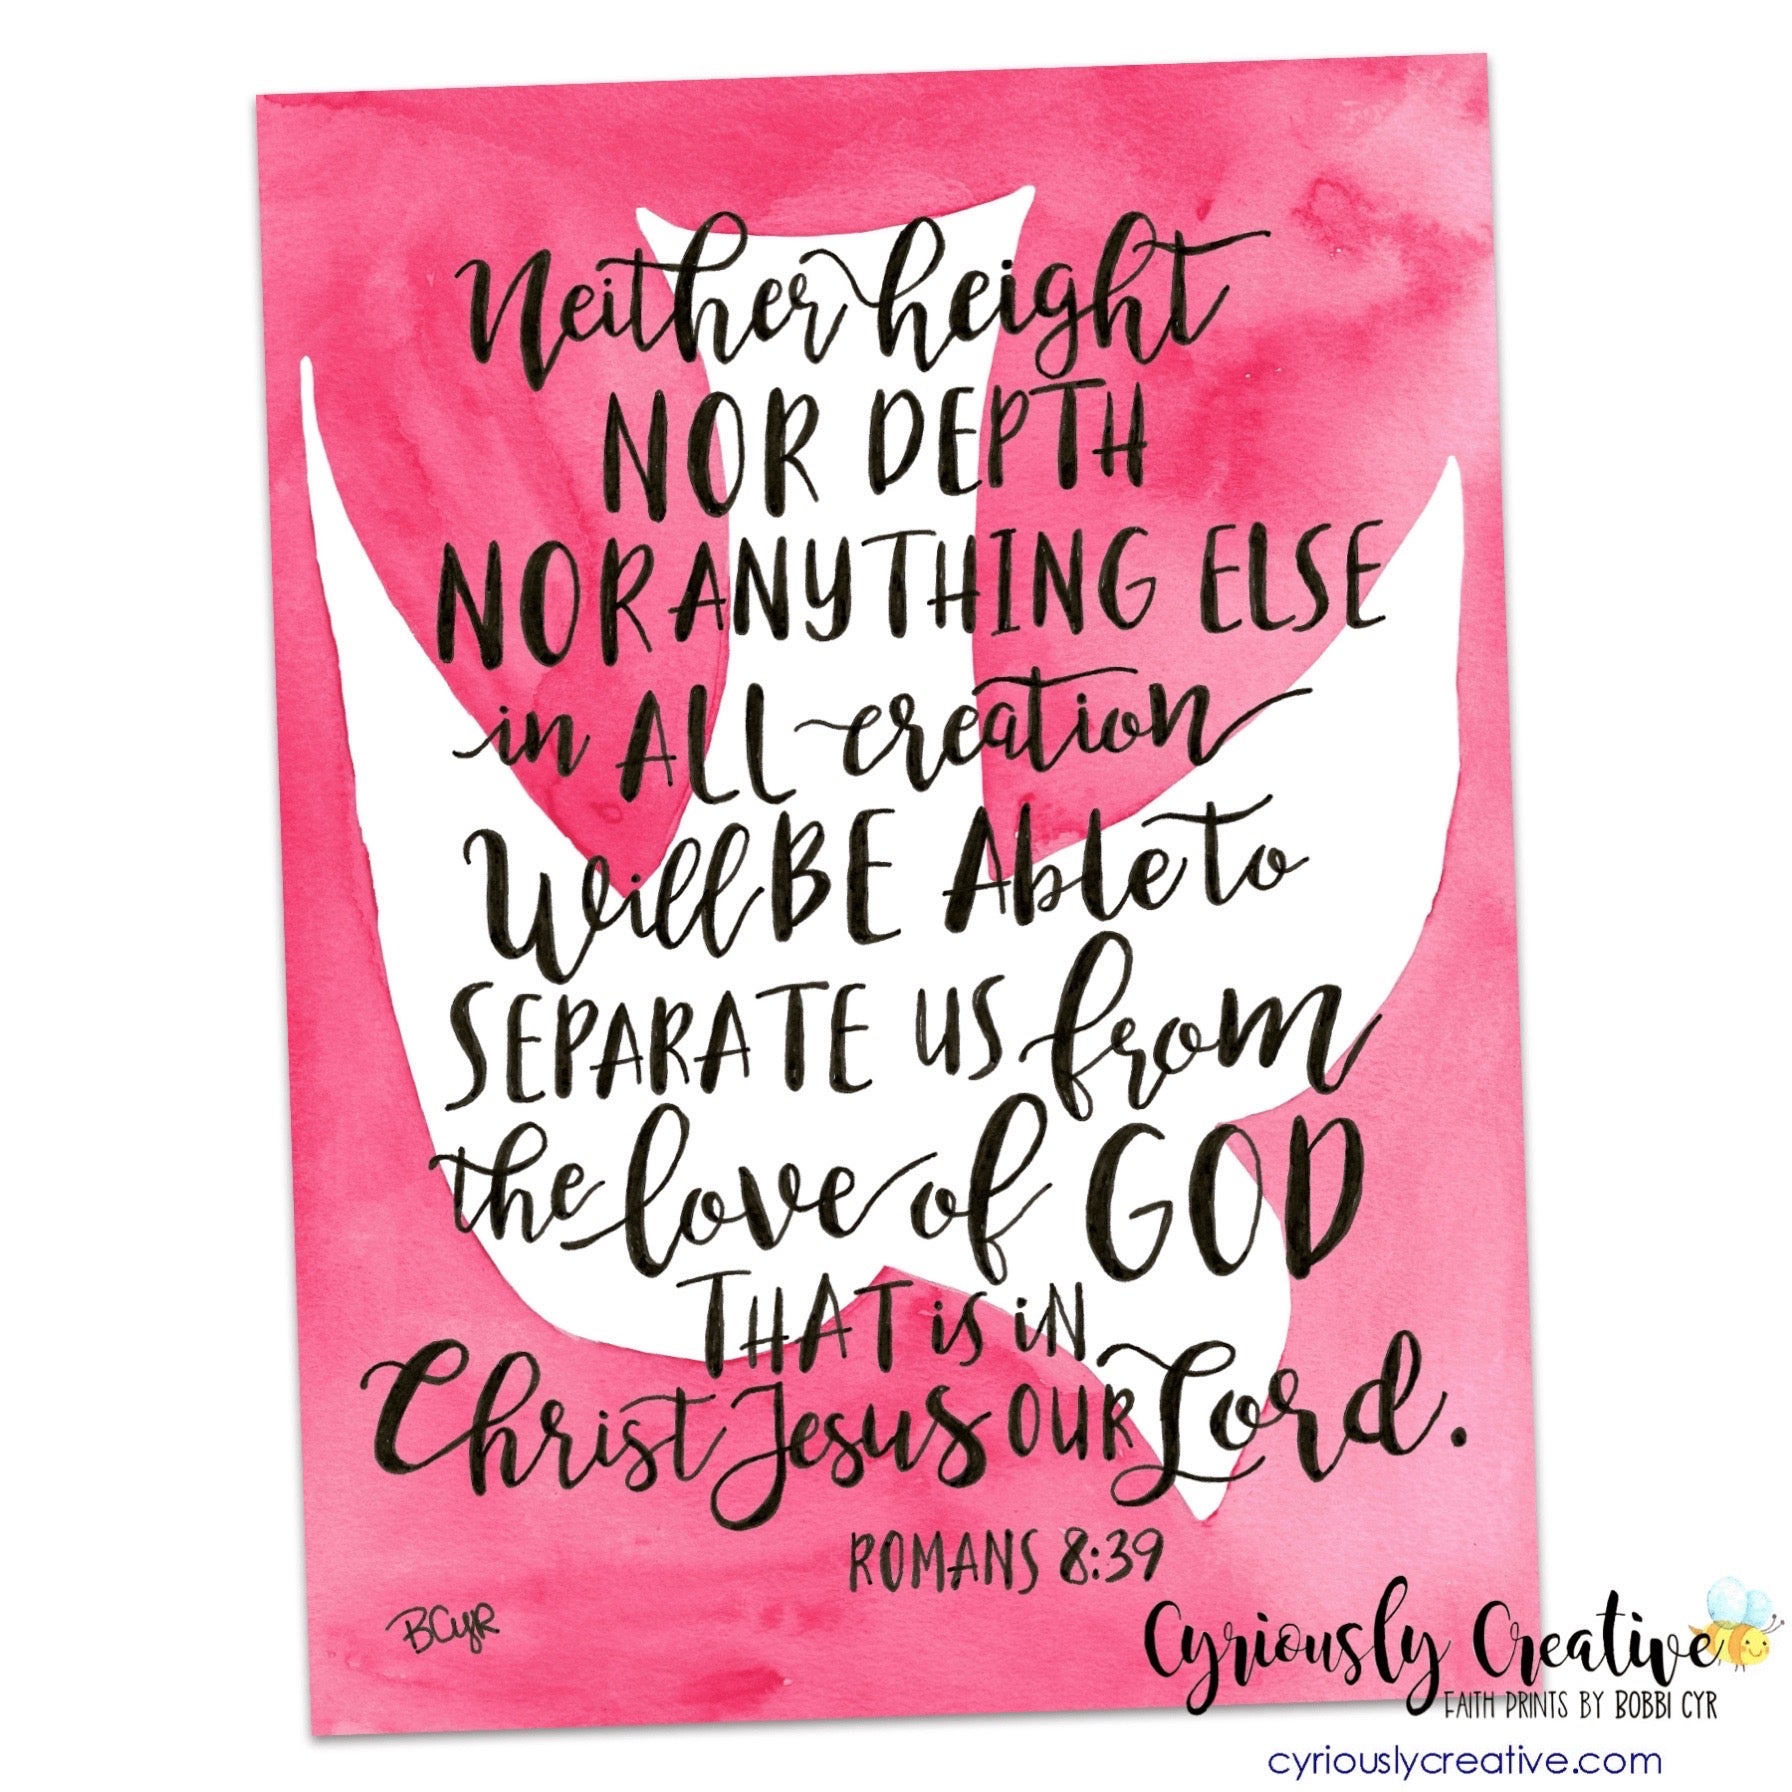 Neither height
NOR DEPTH
NOR ANYTHING ELSE
in ALL creation
Will BE Able to
SEPARATE US from
the love of GOD
THAT is iN
Christ Jesus OUR Lord.
ROMANS 8:39
BCyR
Cyriously Creative
FAITH PRINTS BY BOBBI CYR
cyriouslycreative.com